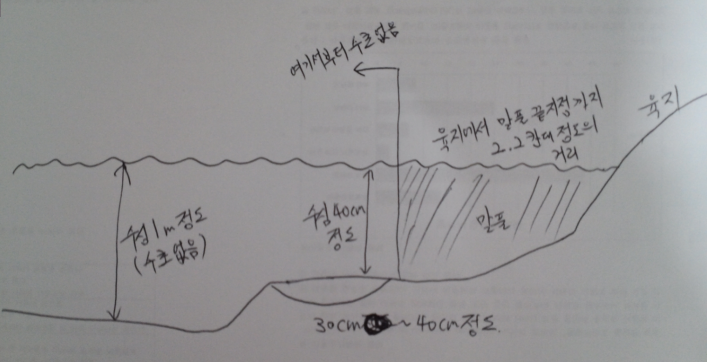 여기서부터 수초없음
육지
육지에서 말풀 끝지점까지
2.2칸대 정도의
거리
수심 1m 정도
(수초없음)
수심 40cm
정도
말풀
30cm ~ 40cm 정도